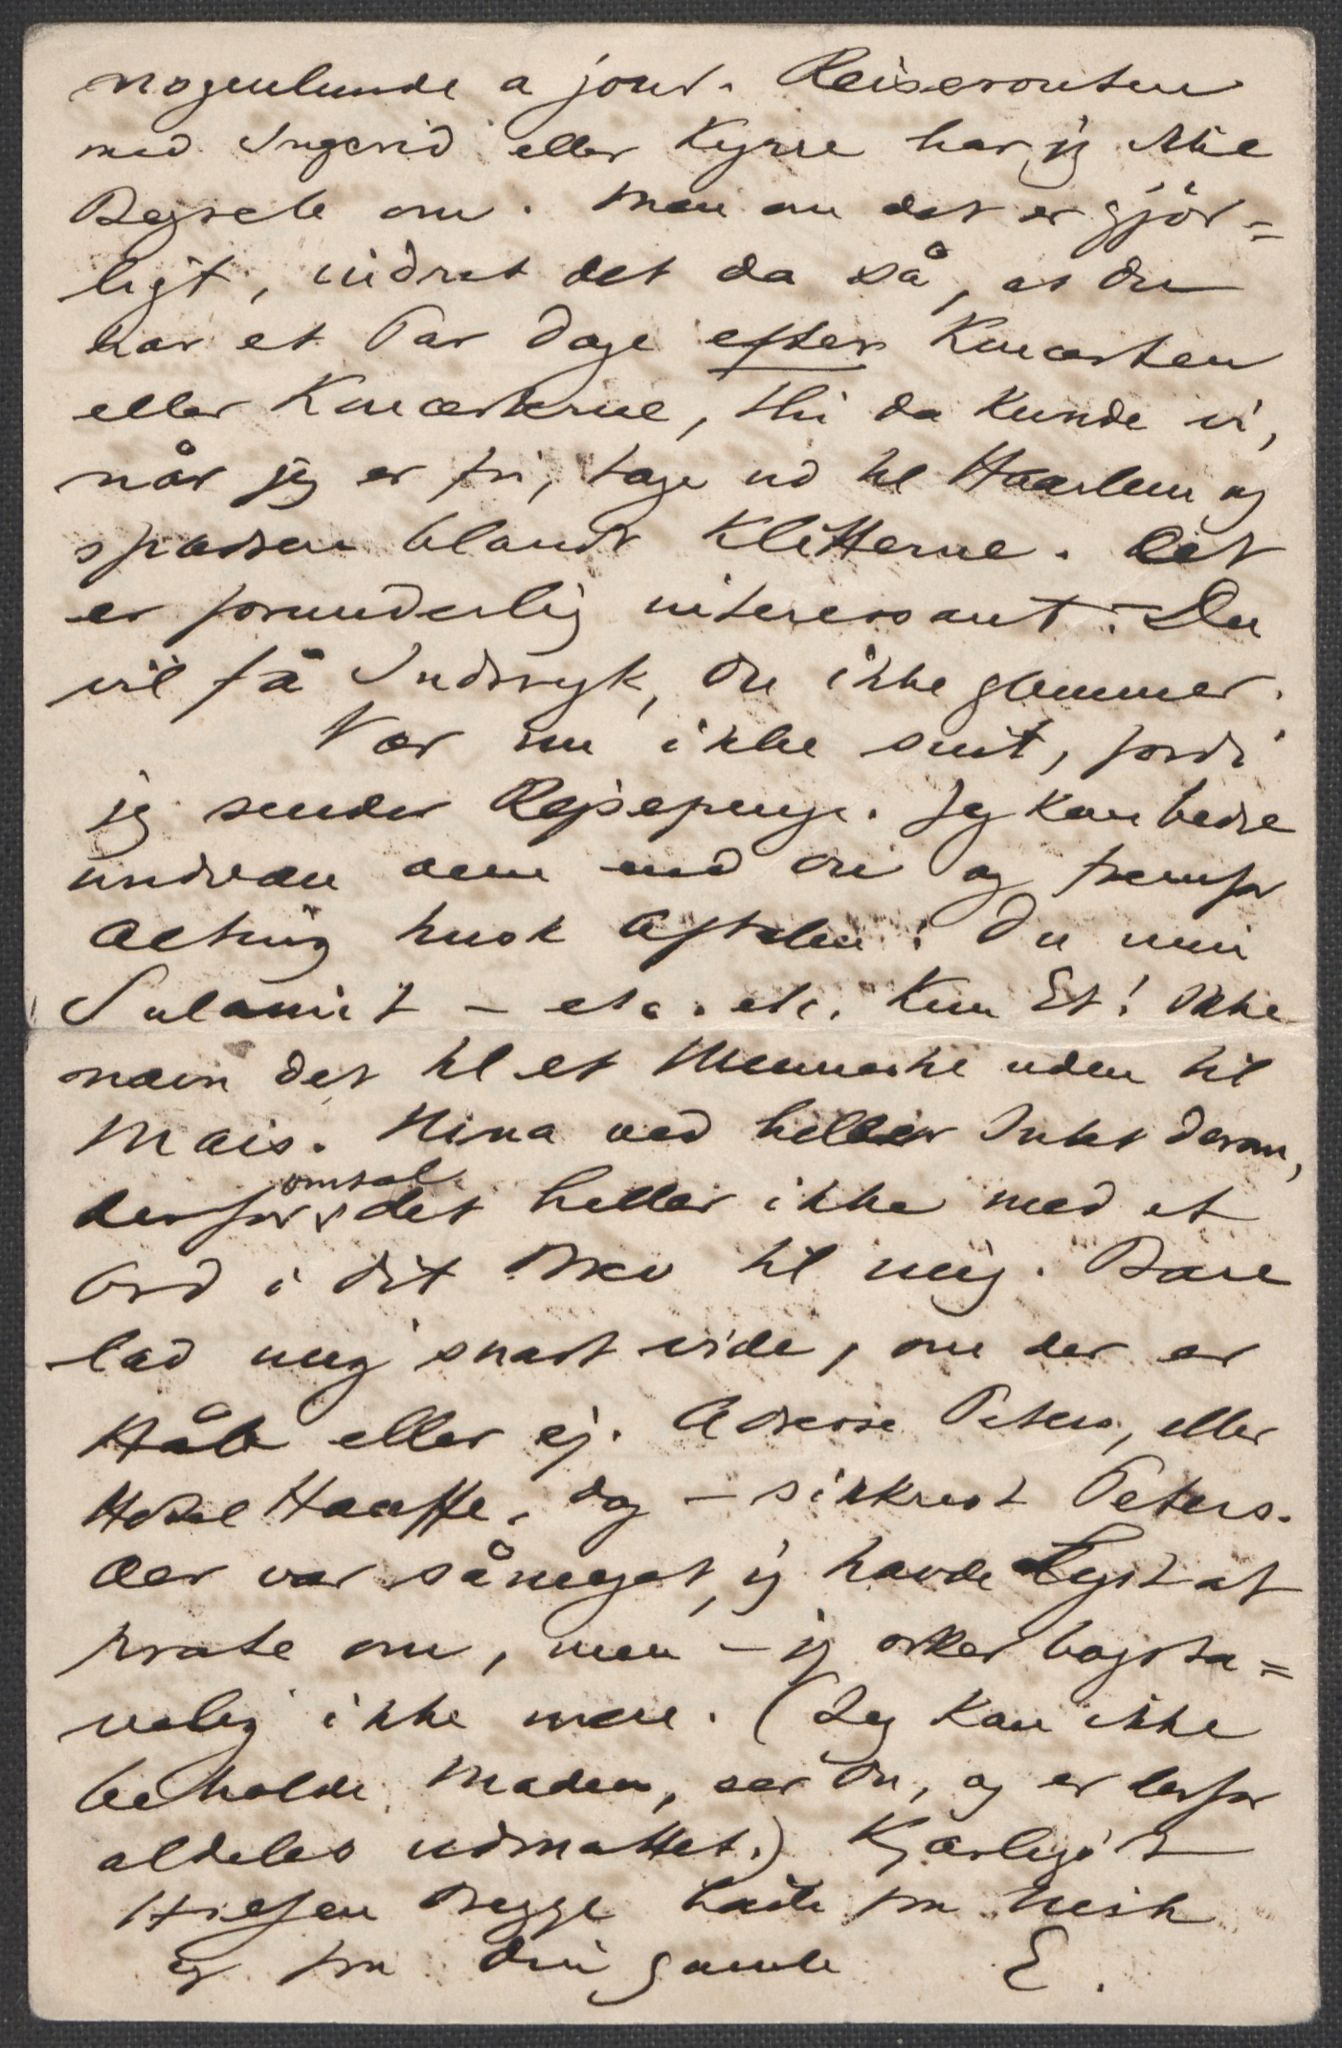 nogenlunde a jour. Reiserouten
med Ingerid eller Kyrre har jeg ikke
Begreb om. Men om det er gjör=
ligt, indret det da så, at du
har et Par Dage efter Koncerten
eller Koncerterne, thi da kunde vi,
når jeg er fri, tage ud til Haarlem og
spadsere blandt Klitterne. Det
er forunderlig interessant. Du
vil få Indtryk, du ikke glemmer.
Vær nu ikke snit, fordi
jeg sender Rejsepenge. Jeg kan bedre
undvære dem end du og fremfor
Alting husk Aftalen: Du min
Sulamit – etc. etc. Kun Et! Ikke
nævn det til et Menneske uden til
Mais. Nina ved heller Intet derom,
derfor omtal det heller ikke med et
Ord i dit Brev til mig. Bare
lad mig snart vide, om der er
Håb eller ej. Adresse Peters, eller
Hotel Haaffe, dog – sikkrest Peters.
Der var såmeget, jeg havde Lyst at
prate om, men – jeg orker bogsta=
velig ikke mere. (Jeg kan ikke
beholde Maden, ser du, og er derfor
aldeles udmattet.) Kjærligst
Hilsen Begge to fra
og fra din gamle E.